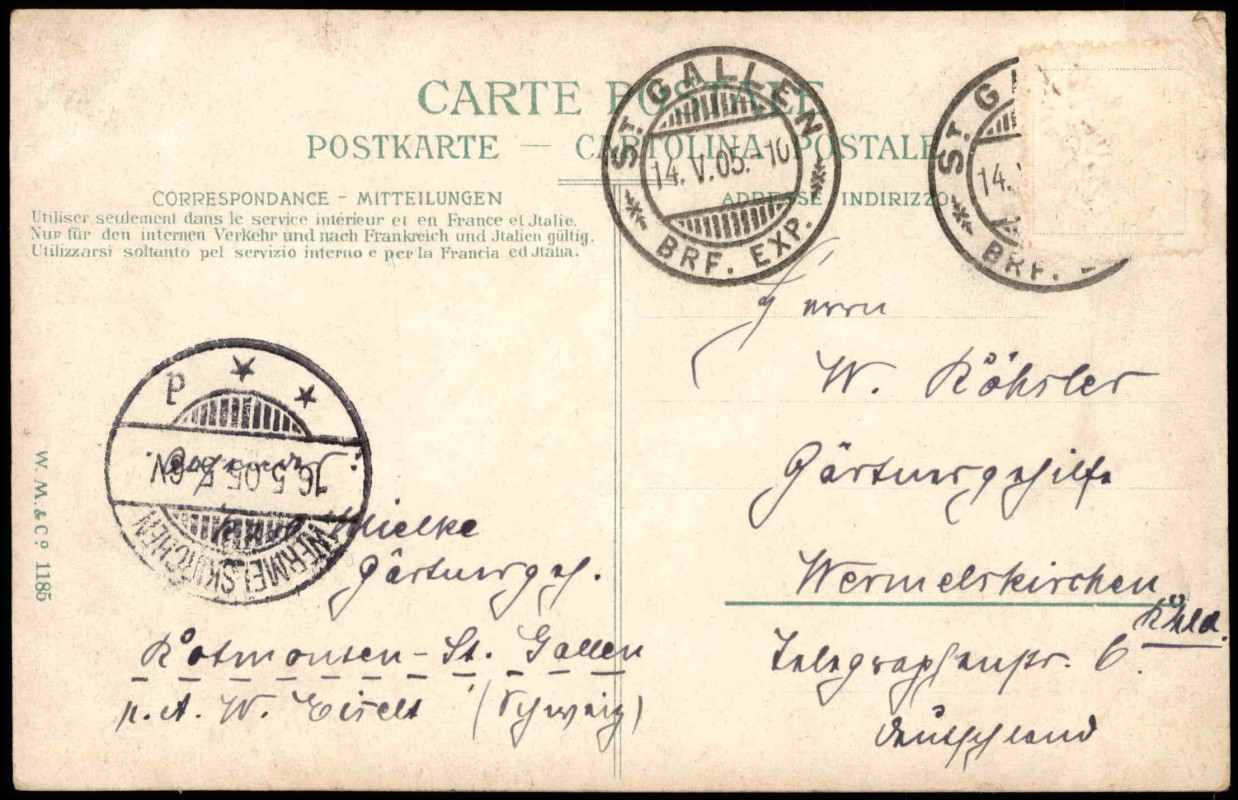 CARTE POSTALE
POSTKARTE — CARTOLINA POSTALE
CORRESPONDANCE - MITTEILUNGEN
Utiliser seulement dans le service intérieur et en France et Jtalie.
Nur für den internen Verkehr und nach Frankreich und Jtalien gültig.
Utilizzarsi soltanto pel servizio interno e per la Francia ed Jtalia.
ADRESSE INDIRIZZO
ST GALLEN
14. V. 05.-10
BRF. EXP.
ST G
14. V
BRF. E
Herrn
W. Röhsler
Gärtnergehilfe
Wermelskirchen
Rhld.
Telegraphenstr. 6.
Deutschland
WERMELSKIRCHEN
16.5.05. 5-6V
P
Mielke
Gärtnergeh.
Rotmonten - St. Gallen
p. A. W. Eiselt (Schweiz)
W. M. & Cº 1185